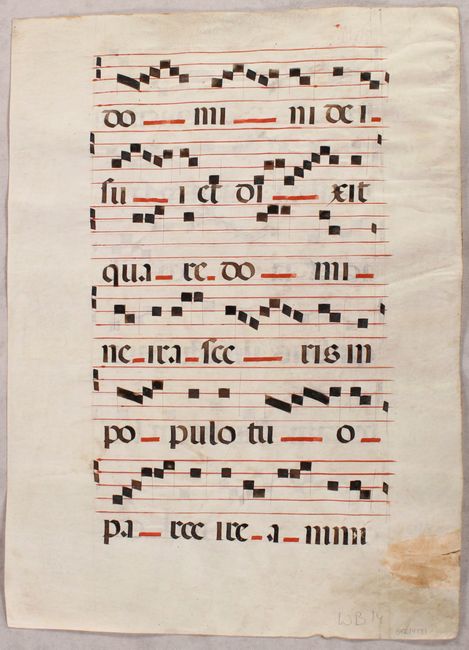 do mi ni dei
sui et di xit
qua re do mi
ne irascee ris in
po pulo tu o
pa rce ire animi
WB 14